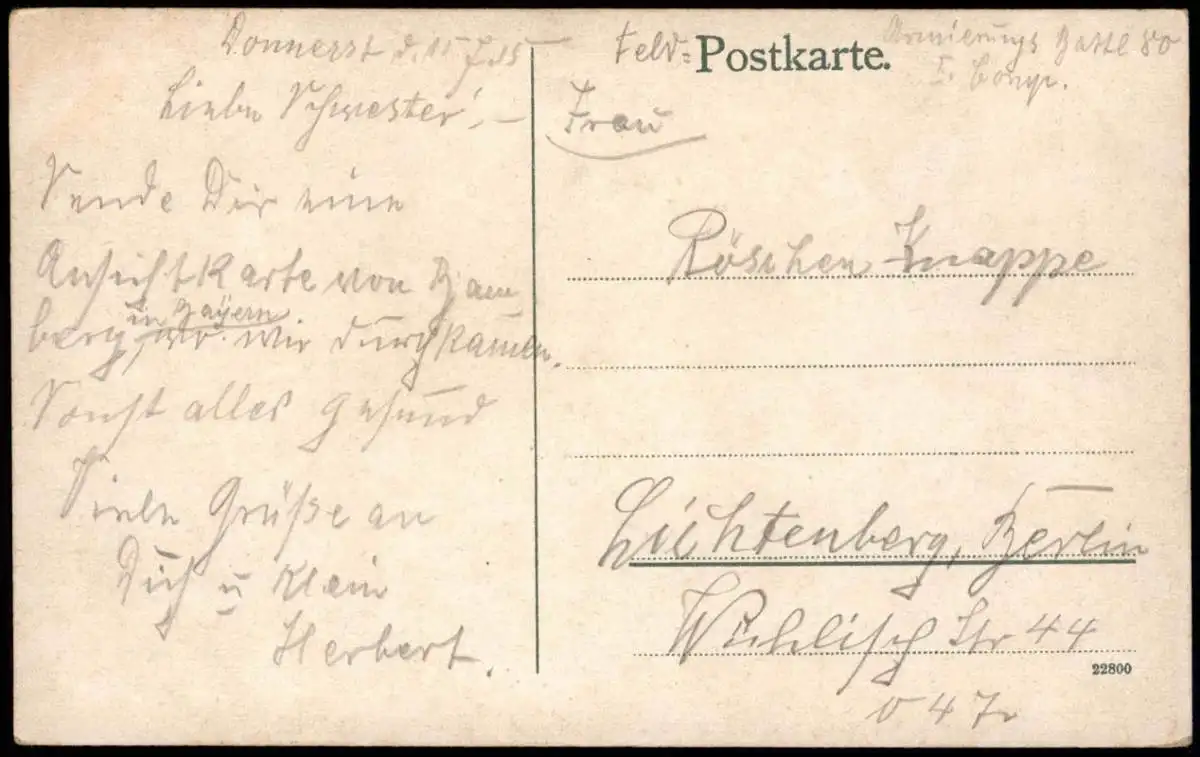 Donnerst d. 15 7.15
Liebe Schwester! –
Sende Dir eine
Ansichtkarte von Bam-
berg, in Bayern wo wir durchkamen.
Sonst alles gesund
Viele Grüße an
Dich u Klein
Herbert.
Feld= Postkarte.
Armierungs Batl 80
I. Comp.
Frau
Röschen Knappe
Lichtenberg, Berlin
Wühlisch Str 44
O 47
22800